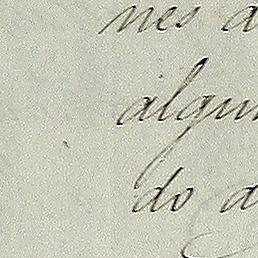 nes a
algun
do a